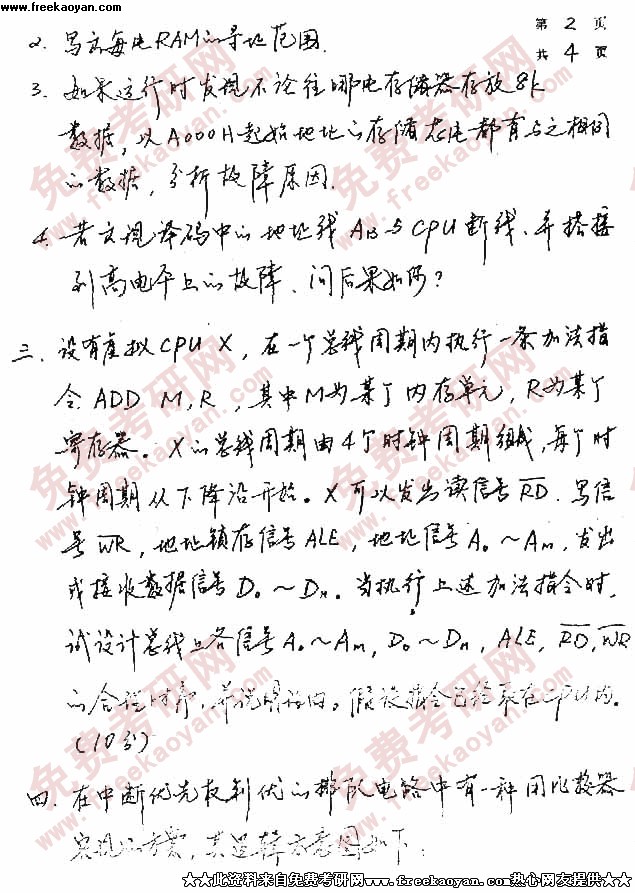 www.freekaoyan.com
第 2 页
共 4 页
2. 写出每片RAM的寻址范围.
3. 如果运行时发现不论往哪片存储器存放8k
数据, 以A000H起始地址的存储芯片都有与之相同
的数据, 分析故障原因.
4. 若出现译码中的地址线A13与CPU断线, 并搭接
到高电平上的故障、问后果如何?
三. 设有虚拟CPU X, 在一个总线周期内执行一条加法指
令 ADD M, R, 其中M为某个内存单元, R为某个
寄存器。X的总线周期由4个时钟周期组成, 每个时
钟周期从下降沿开始。X可以发出读信号R̅D̅、写信
号W̅R̅, 地址锁存信号ALE, 地址信号A₀～Am, 发出
或接收数据信号D₀～Dn。当执行上述加法指令时,
试设计总线上各信号A₀～Am, D₀～Dn, ALE, R̅D̅, W̅R̅
的合理时序, 并说明理由。假设指令已经取在CPU内。
(10分)
四. 在中断优先权判优的排队电路中有一种用比较器
实现的方案, 其逻辑示意图如下:
★★此资料来自免费考研网www.freekaoyan.com热心网友提供★★